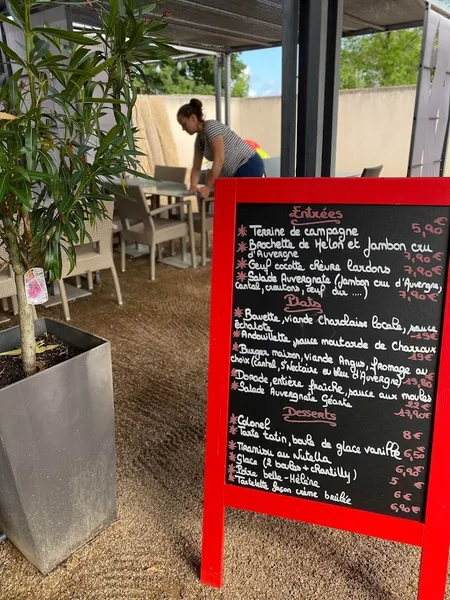 Entrées
* Terrine de campagne 5,90€
* Brochette de Melon et Jambon cru d'Auvergne 7,90€
* Oeuf cocotte chèvre lardons 7,90€
* Salade Auvergnate (Jambon cru d'Auvergne,
Cantal, croutons, œuf dur ....) 7,90€
Plats
* Bavette, viande Charolaise locale, sauce
échalote 19€
* Andouillette, sauce moutarde de Charroux 19€
* Burger maison, viande Angus, fromage au
choix (Cantal, St Nectaire ou bleu d'Auvergne) 19,80€
* Dorade, entière fraîche, sauce aux moules 22€
* Salade Auvergnate Géante 17,90€
Desserts
* Colonel 8€
* Tarte tatin, boule de glace vanille 6,50
* Tiramisu au Nutella 6,90€
* Glace (2 boules + chantilly) 5€
* Poire belle-Hélène 6€
* Tartelette façon crème brûlée 6,90€